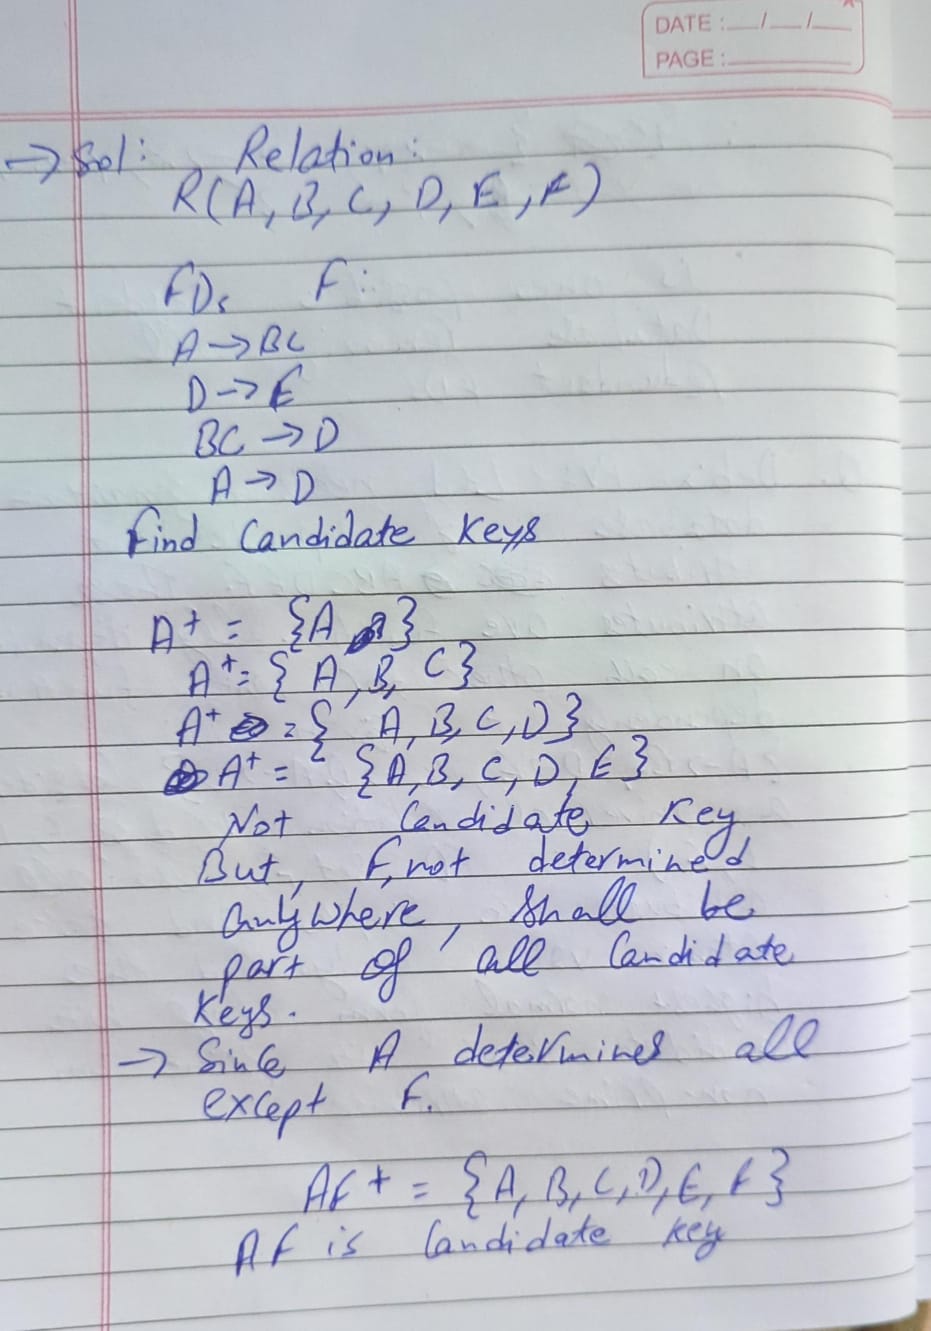 DATE :__/__/__
PAGE :
→ Sol: Relation:
R(A, B, C, D, E, F)
FDs F:
A → BC
D → E
BC → D
A → D
Find Candidate Keys
A+ = {A }
A+ = { A, B, C}
A+ = { A, B, C, D}
A+ = {A, B, C, D, E}
Not Candidate Key
But, F, not determined
anywhere, shall be
part of all Candidate
Keys.
→ Since A determines all
except F.
AF+ = {A, B, C, D, E, F}
AF is Candidate Key